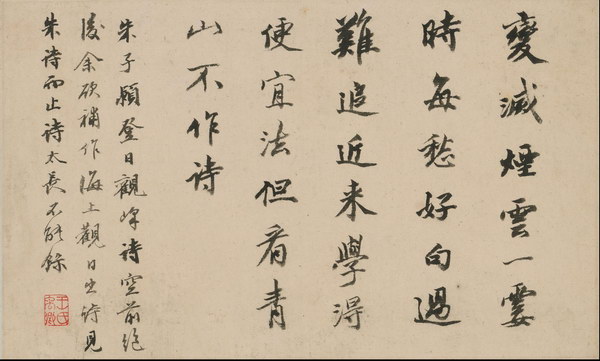 變滅煙雲一霎
時每愁好句過
難追近来學得
便宜法但看青
山不作诗
朱子穎登日觀峰诗空前绝
後余欲補作海上觀日出诗見
朱诗而止诗太長不能錄